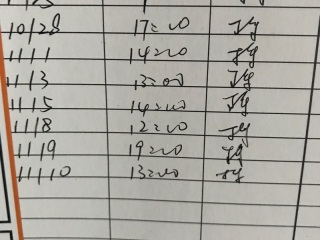 10/28 17:00 Jy
11/1 14:00 Jy
11/3 13:00 Jy
11/5 14:00 Jy
11/8 12:00 Jy
11/9 19:00 Jy
11/10 13:00 Jy